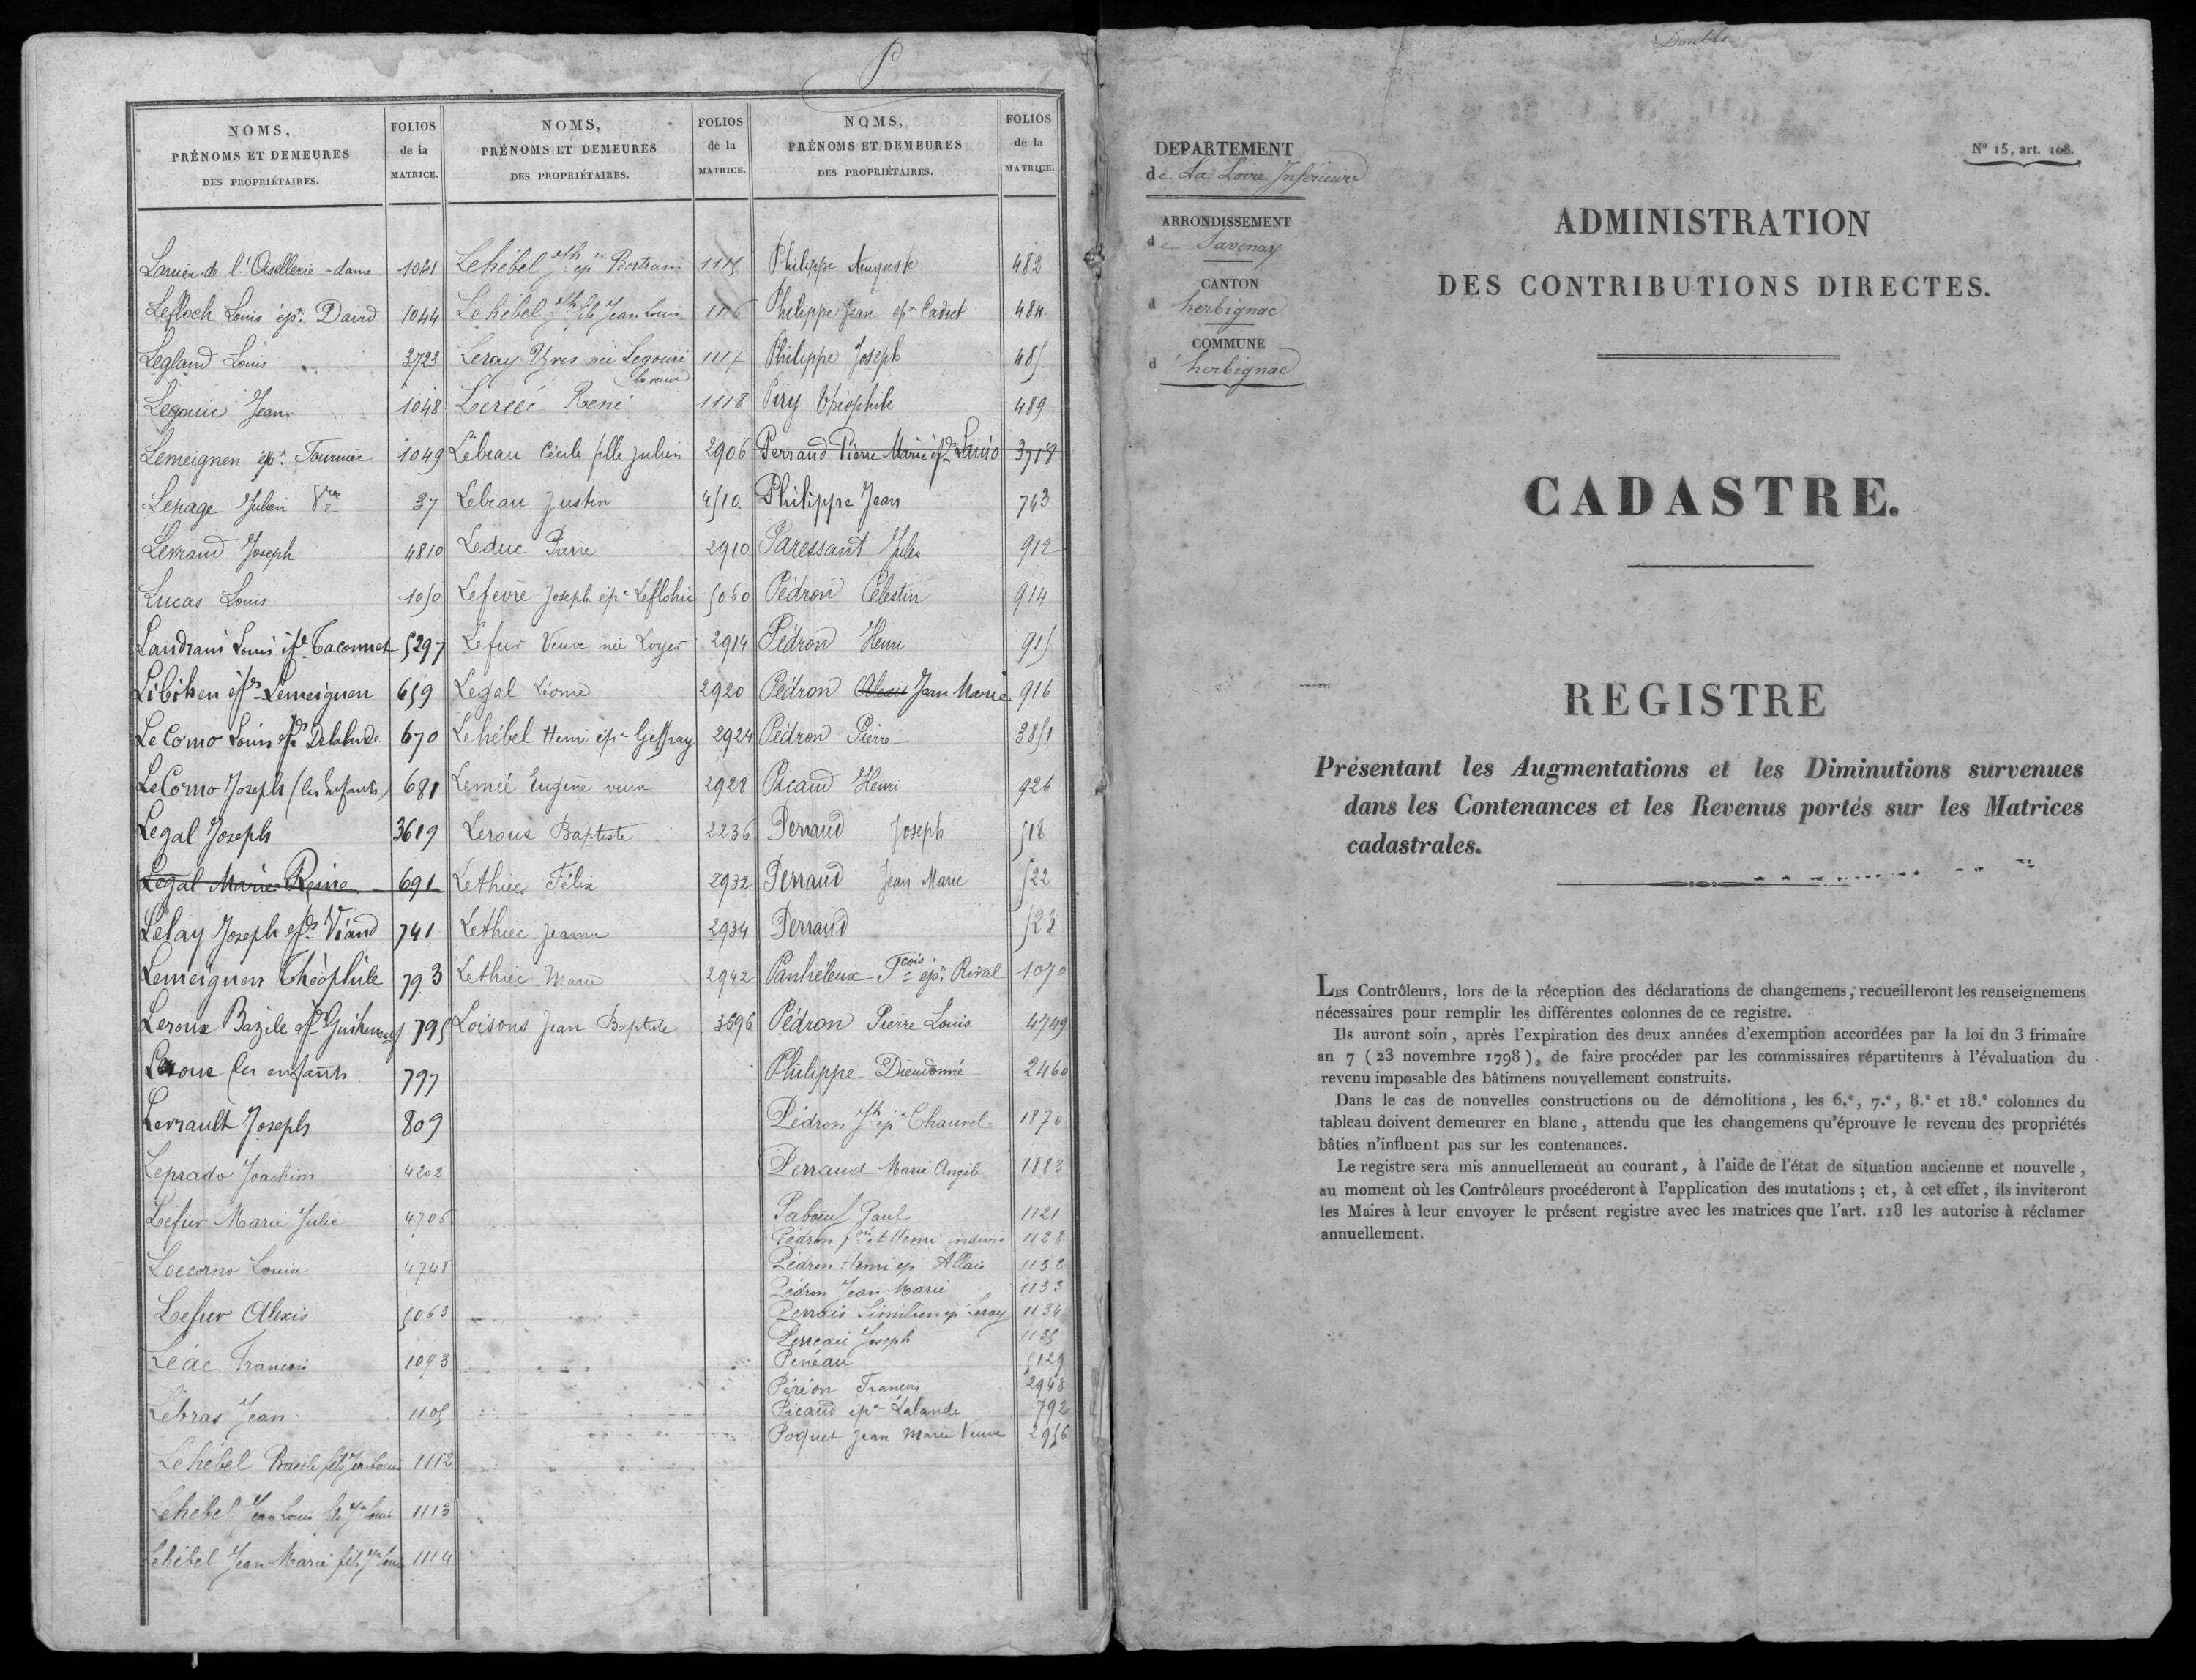 P
NOMS,
PRÉNOMS ET DEMEURES
DES PROPRIÉTAIRES.
FOLIOS
de la
MATRICE.
Larieu de l'Oisellerie - dame 1041
Lefloch Louis épx. David 1044
Legland Louis 3723
Legouic Jean 1048
Lemeignen épx. Fournier 1049
Lepage Julien Vve 37
Levraud Joseph 4810
Lucas Louis 1050
Landrani Louis épx Taconnet 5297
Libihen épx Lemeignen 659
Le Corno Louis épx Delalande 670
Le Corno Joseph (les enfants) 681
Legal Joseph 3619
Legal Marie Reine 691
Lelay Joseph épx Viand 741
Lemeignen Théophile 793
Leroux Bazile épx Guiheneuf 795
Leroux (les enfants 797
Levrault Joseph 809
Leprado Joachim 4202
Lefur Marie Julie 4706
Lecorno Louis 4748
Lefur Alexis 5063
Leác François 1093
Lebras Jean 1105
Lehébel Basile fils Jean Louis 1112
Lehébel Jean Louis fils Jn Louis 1113
Lehébel Jean Marie fils Jn Louis 1114
NOMS,
PRÉNOMS ET DEMEURES
DES PROPRIÉTAIRES.
FOLIOS
de la
MATRICE.
Lehébel Jph épx Bertrand 1115
Lehébel Jph fils Jean Louis 1116
Leray Yves née Legouic 1117
la veuve
Lercié René 1118
Lebeau Cécile fille julien 2906
Lebeau Justin 4510
Leduc Pierre 2910
Lefevre Joseph épx Leflohic 5060
Lefur Veuve née Loyer 2914
Legal Léonie 2920
Lehébel Henri épx Geffray 2924
Lemée Eugène veuve 2928
Leroux Baptiste 2236
Lethiec Félix 2932
Lethiec Jeanne 2934
Lethiec Marie 2942
Loisons Jean Baptiste 3696
NOMS,
PRÉNOMS ET DEMEURES
DES PROPRIÉTAIRES.
FOLIOS
de la
MATRICE.
Philippe Auguste 482
Philippe Jean épx Cadiet 484
Philippe Joseph 485
Piry Théophile 489
Perraud Pierre Marie épx Lanio 3718
Philippe Jean 743
Paressant Jules 912
Pédron Célestin 914
Pédron Henri 915
Pédron Alexis Jean Marie 916
Pédron Pierre 3851
Picaud Henri 926
Perraud Joseph 518
Perraud Jean Marie 522
Perraud 523
Panheleux Fcois épx. Rival 1070
Pédron Pierre Louis 4749
Philippe Dieudonné 2460
Pédron Jh épx Chauvel 1870
Perraud Marie Angèle 1883
Pabœuf Paul 1121
Pédron pre et Henri indivis 1128
Pédron Henri ép Allais 1132
Pédron Jean Marie 1133
Perrais Similien ép Leray 1134
Perreau Joseph 1135
Penéau 5129
Péréon François 2948
Picaud épx Lalande 792
Poquet Jean Marie Veuve 2956
Double
DEPARTEMENT
de La Loire Inférieure
ARRONDISSEMENT
de Savenay
CANTON
d'herbignac
COMMUNE
d'herbignac
Nº 15, art. 108.
ADMINISTRATION
DES CONTRIBUTIONS DIRECTES.
CADASTRE.
REGISTRE
Présentant les Augmentations et les Diminutions survenues
dans les Contenances et les Revenus portés sur les Matrices
cadastrales.
LES Contrôleurs, lors de la réception des déclarations de changemens, recueilleront les renseignemens
nécessaires pour remplir les différentes colonnes de ce registre.
Ils auront soin, après l'expiration des deux années d'exemption accordées par la loi du 3 frimaire
an 7 (23 novembre 1798), de faire procéder par les commissaires répartiteurs à l'évaluation du
revenu imposable des bâtimens nouvellement construits.
Dans le cas de nouvelles constructions ou de démolitions, les 6.e, 7.e, 8.e et 18.e colonnes du
tableau doivent demeurer en blanc, attendu que les changemens qu'éprouve le revenu des propriétés
bâties n'influent pas sur les contenances.
Le registre sera mis annuellement au courant, à l'aide de l'état de situation ancienne et nouvelle,
au moment où les Contrôleurs procéderont à l'application des mutations; et, à cet effet, ils inviteront
les Maires à leur envoyer le présent registre avec les matrices que l'art. 118 les autorise à réclamer
annuellement.